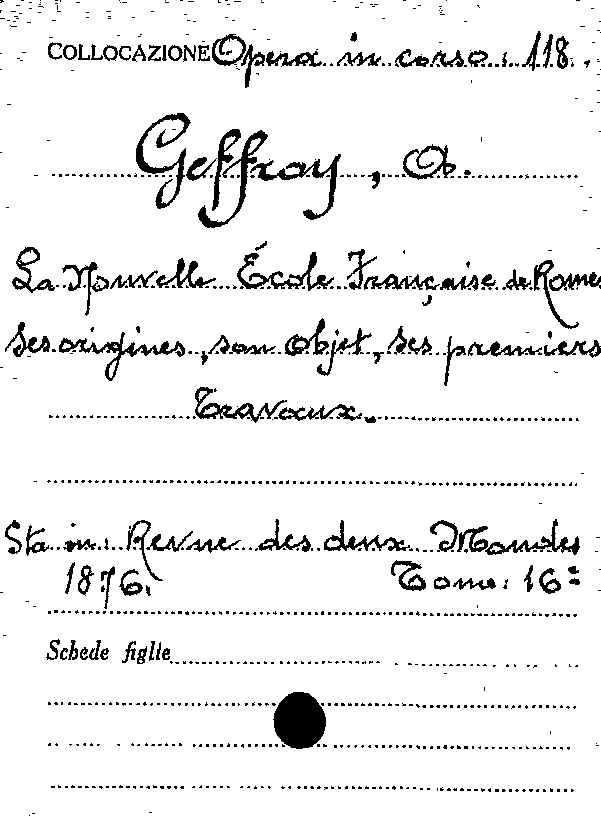 COLLOCAZIONE Opera in corso: 118.
Geffroy, A.
La Nouvelle École Française de Rome
Ses origines, son objet, ses premiers
Travaux.
Sta in: Revue des deux Mondes
1876. Tome: 16º
Schede figlie